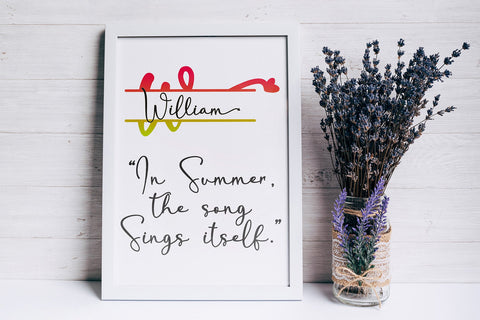 William
“In Summer,
the song
Sings itself.”